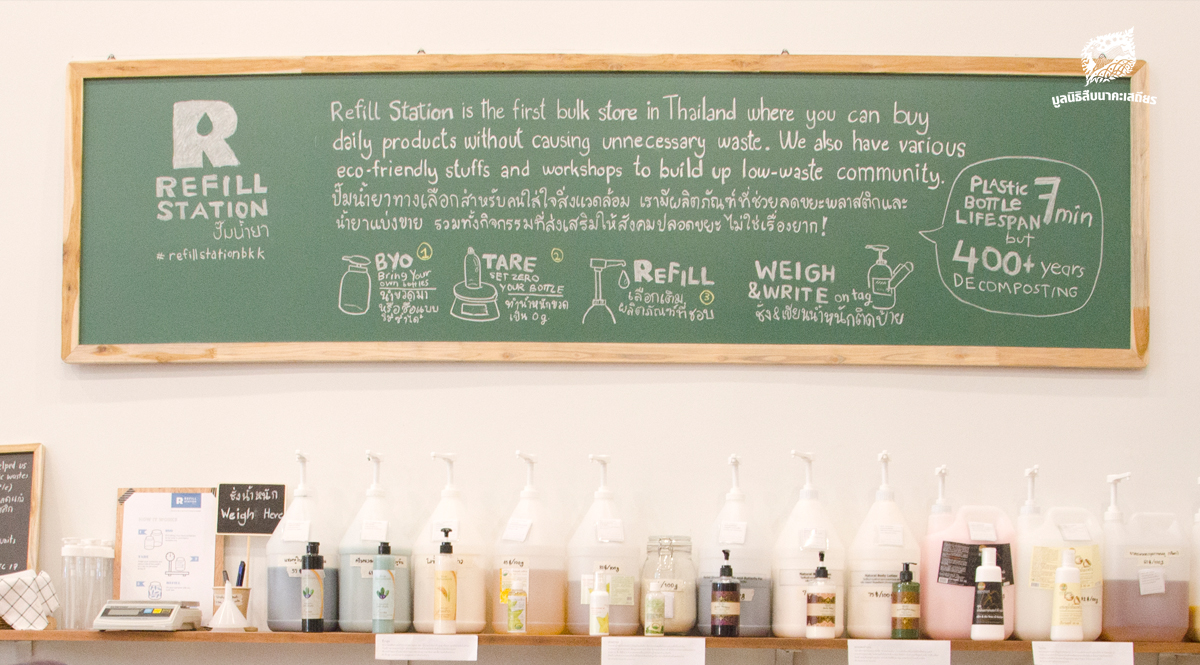 มูลนิธิสืบนาคะเสถียร
R
REFILL
STATION
ปั๊มน้ำยา
#refillstationbkk
Refill Station is the first bulk store in Thailand where you can buy
daily products without causing unnecessary waste. We also have various
eco-friendly stuffs and workshops to build up low-waste community.
ปั๊มน้ำยาทางเลือกสำหรับคนใส่ใจสิ่งแวดล้อม เรามีผลิตภัณฑ์ที่ช่วยลดขยะพลาสติกและ
น้ำยาแบ่งขาย รวมทั้งกิจกรรมที่ส่งเสริมให้สังคมปลอดขยะ ไม่ใช่เรื่องยาก!
PLAStic
BOttLe
LIFESPAN 7 min
but
400+ years
DECOMPOSTING
BYO 1
Bring Your
own bottles
นำขวดมา
หรือซื้อแบบ
ใช้ซ้ำได้
TARE 2
SET ZERO
YOUR BOTTLE
ชั่งน้ำหนักขวด
เป็น 0g
REFILL
เลือกเติม 3
ผลิตภัณฑ์ที่ชอบ
WEIGH
&WRITE on tag
ชั่ง&เขียนน้ำหนักติดป้าย
ชั่งน้ำหนัก
Weigh Here